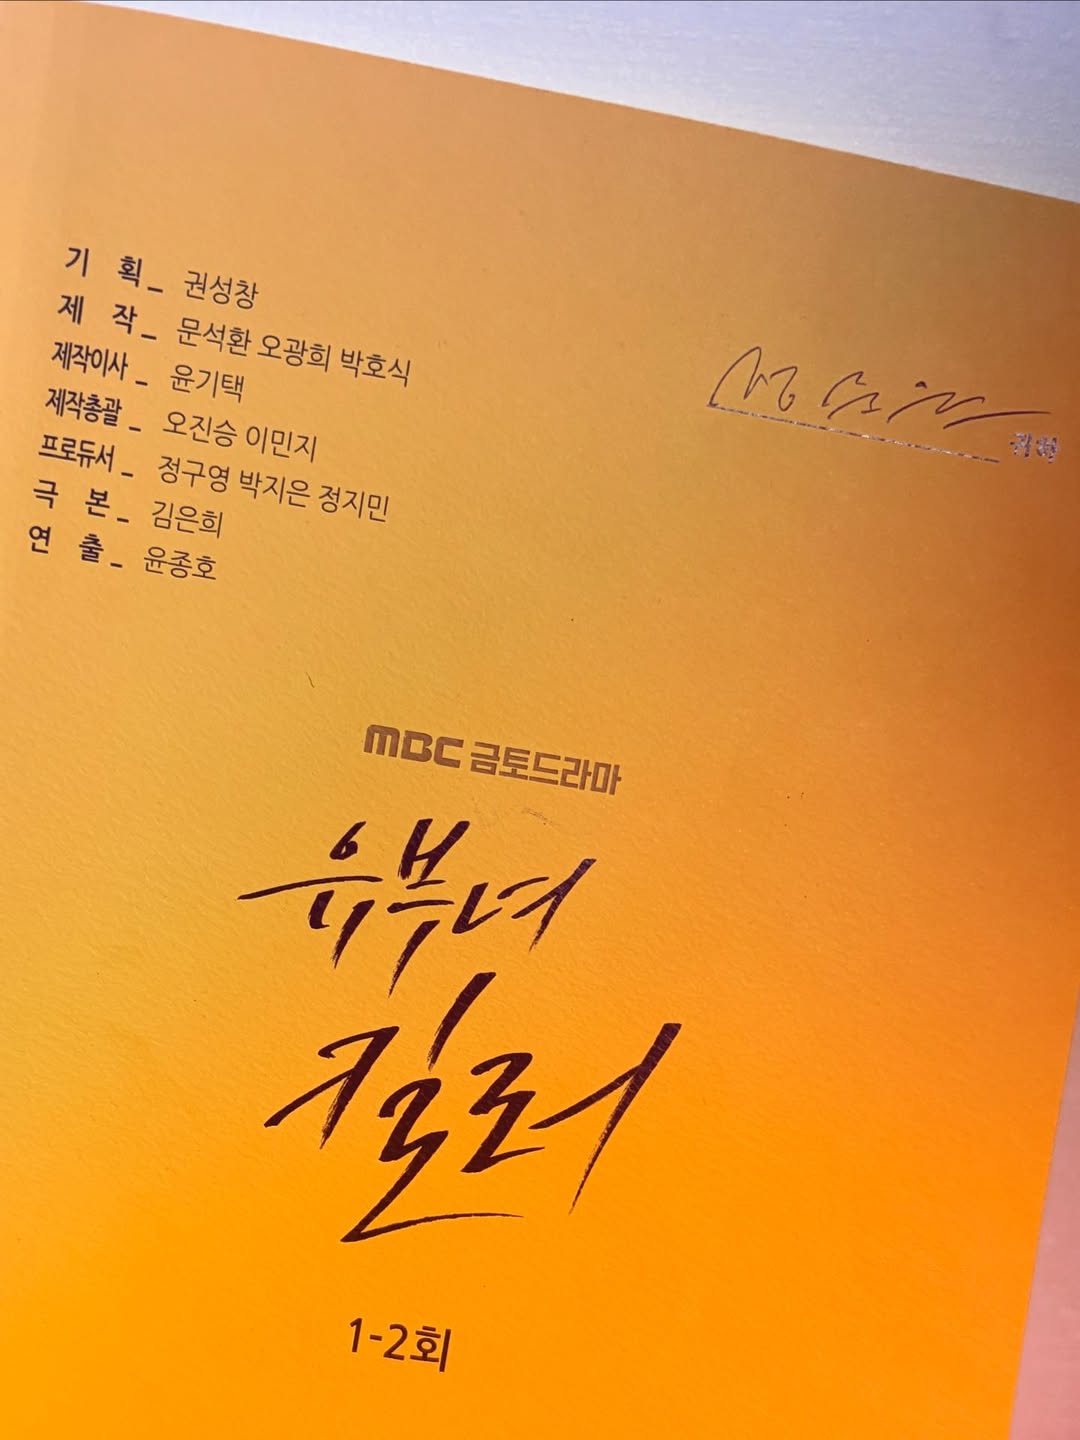 기 획_ 권성창
제 작_ 문석환 오광희 박호식
제작이사_ 윤기택
제작총괄_ 오진승 이민지
프로듀서_ 정구영 박지은 정지민
극 본_ 김은희
연 출_ 윤종호
귀하
MBC 금토드라마
유부녀
킬러
1-2회